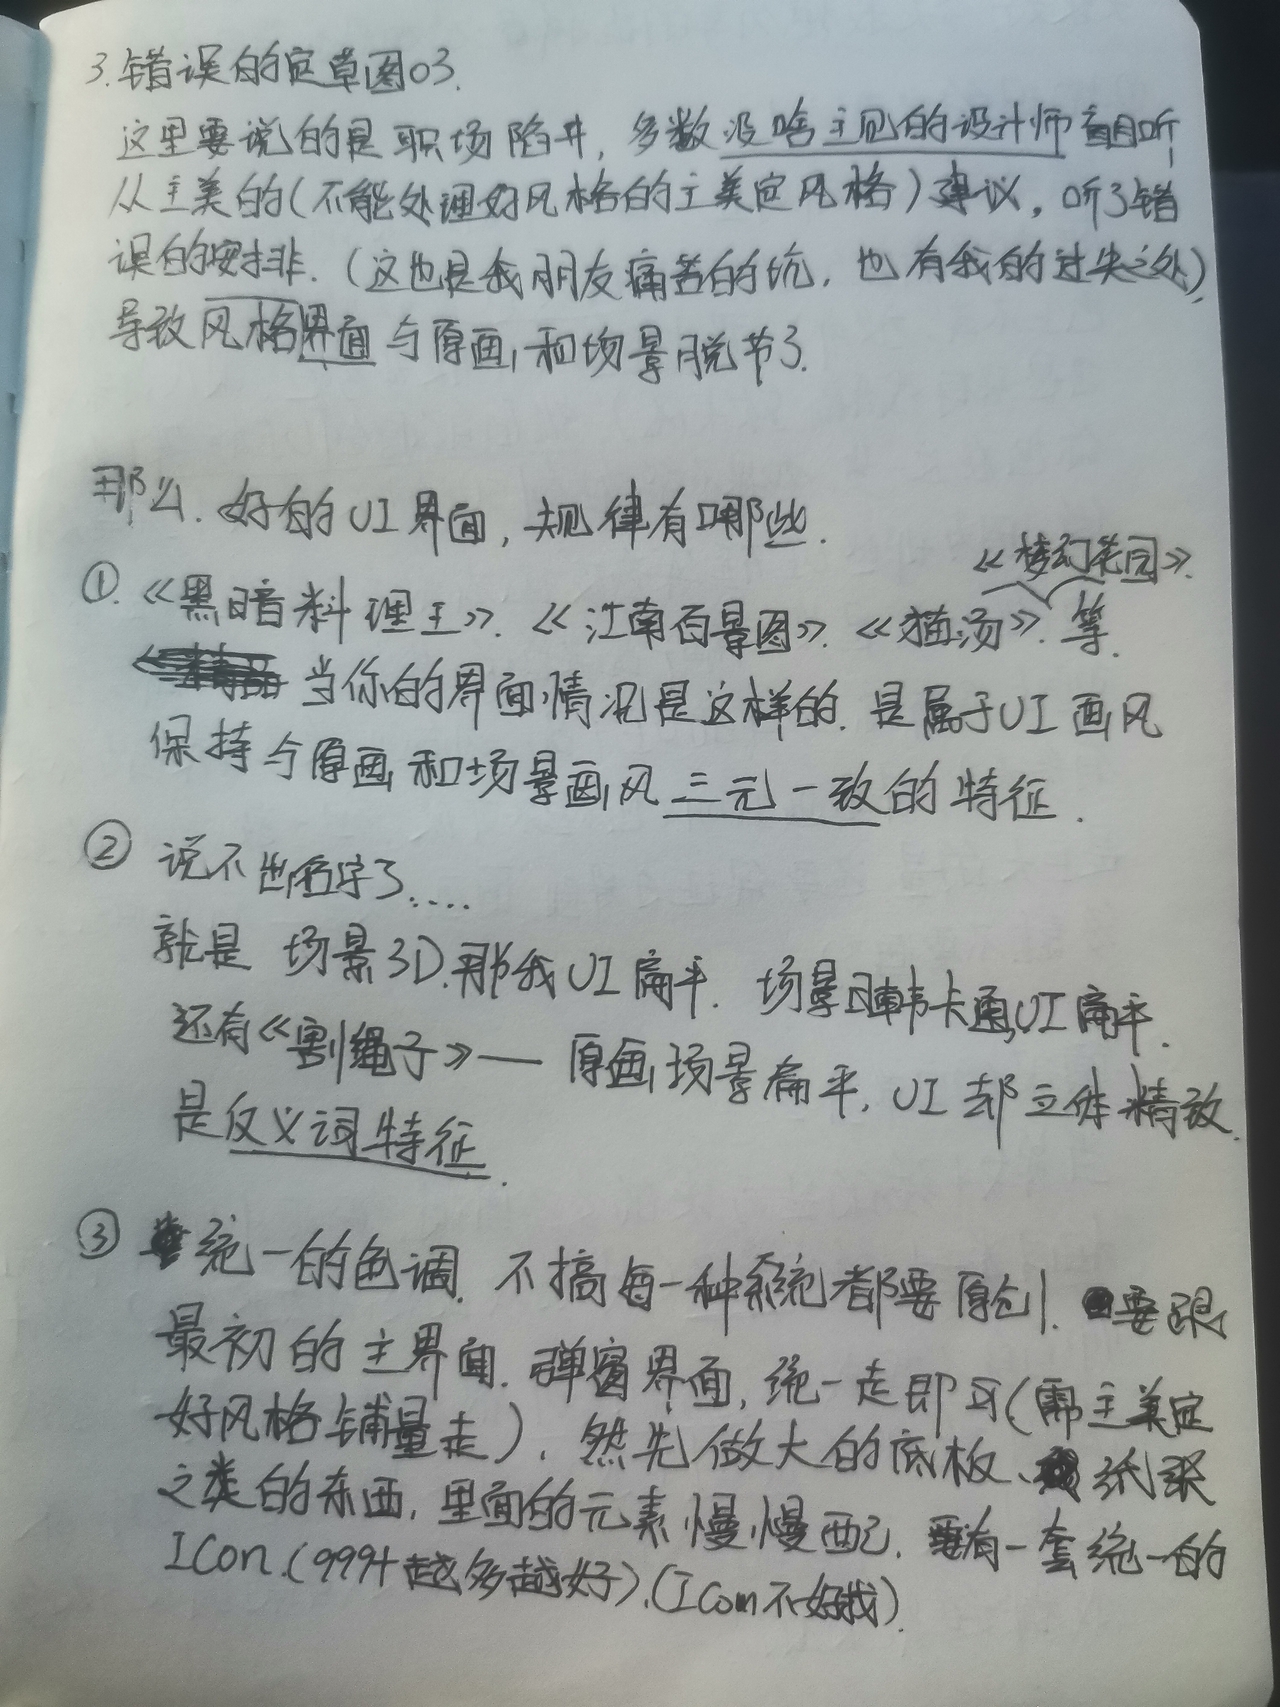 3.错误的定草图03.
这里要说的是职场陷井,多数没啥主见的设计师盲目听
从主美的(不能处理好风格的主美定风格)建议,听了错
误的安排.(这也是我朋友痛苦的坑,也有我的过失之处),
导致风格界面与原画和场景脱节了.
那么.好的UI界面,规律有哪些.
《梦幻花园》.
①.《黑暗料理王》.《江南百景图》.《猫汤》.等.
当你的界面情况是这样的.是属于UI画风
保持与原画和场景画风三元一致的特征.
② 说不出名字了....
就是 场景3D.那我UI扁平.场景日韩卡通,UI扁平.
还有《割绳子》—原画场景扁平,UI却立体精致.
是反义词特征.
③ 统一的色调.不搞每一种系统都要原创.要跟
最初的主界面.弹窗界面,统一走即可(需主美定
好风格铺量走).然先做大的底板、纸张
之类的东西,里面的元素慢慢配.要有一套统一的
ICon.(999+越多越好).(ICon不好找).